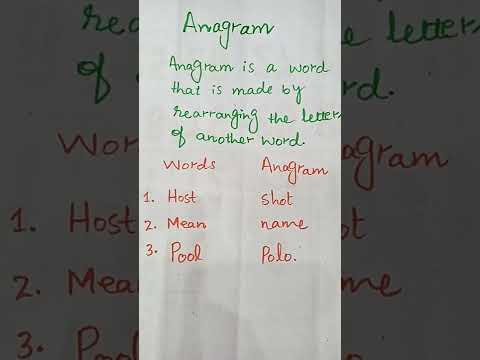 Anagram
Anagram is a word
that is made by
rearranging the letters
of another word.
Words Anagram
1. Host shot
2. Mean name
3. Pool Polo.